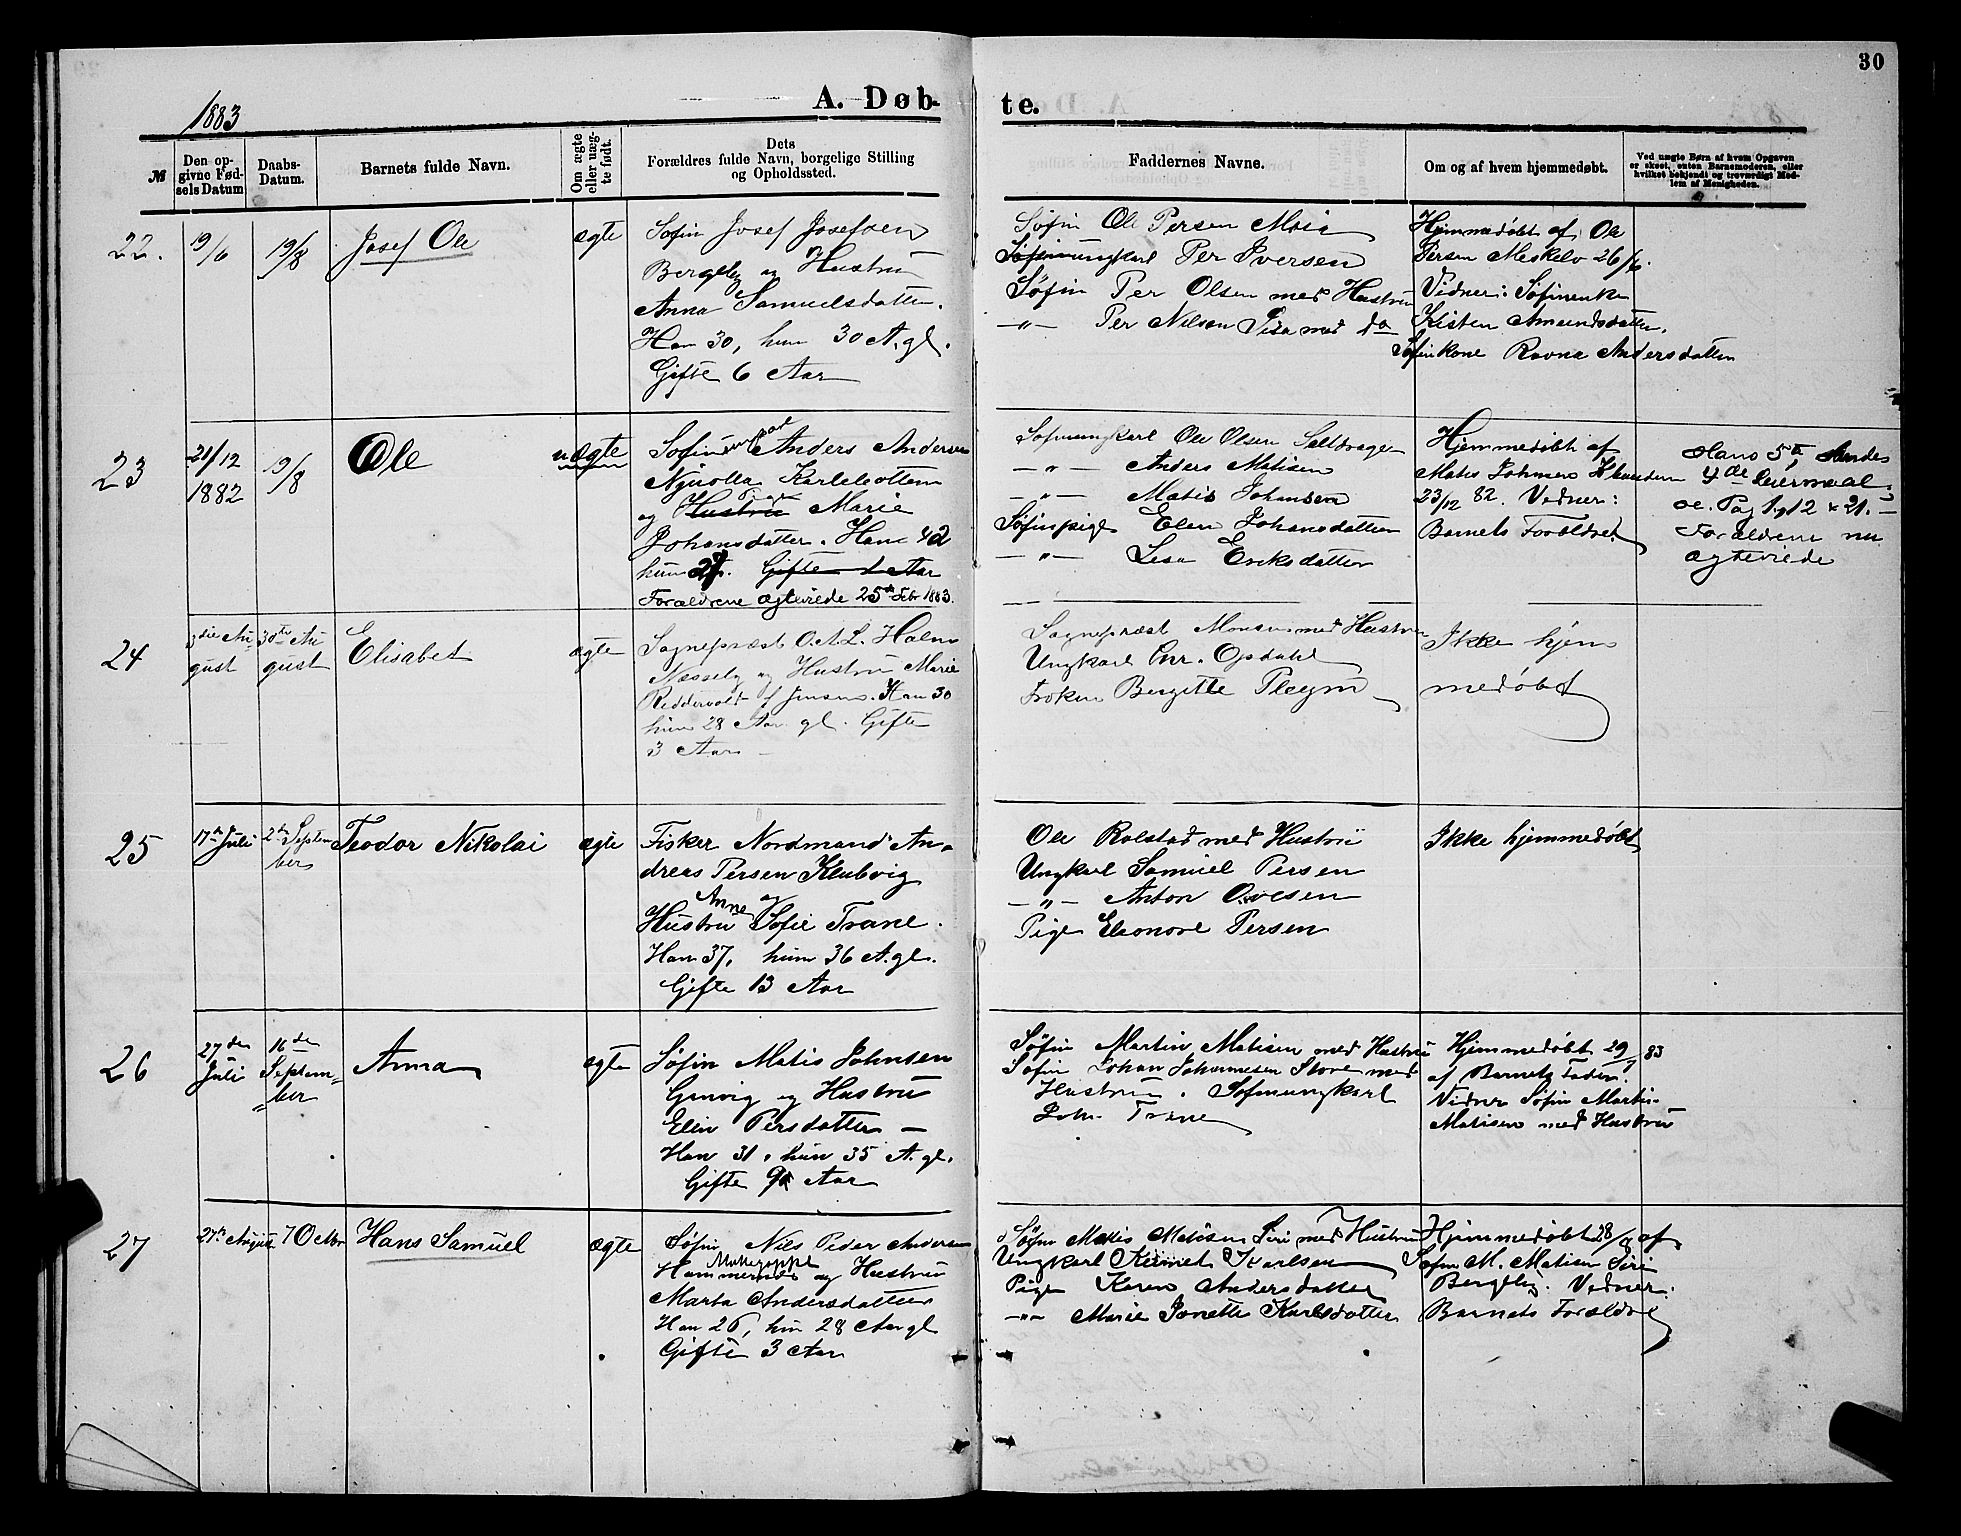 30
1883
A. Døb-
te.
№
Den opgivne Fødsels Datum
Daabs-Datum.
Barnets fulde Navn.
Om ægte eller uægte født.
Dets
Forældres fulde Navn, borgelige Stilling
og Opholdssted.
Faddernes Navne.
Om og af hvem hjemmedøbt.
Ved uægte Børn af hvem Opgaven
er skeet, enten Barnemoderen, eller
hvilket bekjendt og troværdigt Med-
lem af Menigheden.
22.
19/6
19/8
Josef Ole
ægte
Søfin Josef Josefsen
Bergeby og Hustru
Anna Samuelsdatter.
Han 30, hun 30 A. gl.
Gifte 6 Aar
Søfin Ole Persen
Søfinungkarl Per Iversen
Søfin Per Olsen med Hustru
—„— Per Nilsen med do
Hjemmedøbt af Ole
Persen Meskelv 26/6.
Vidner: Søfinenke
Kisten Amundsdatter.
Søfinkone Ravna Andersdatter
23
21/12
1882
19/8
Ole
uægte
Søfinungkarl Anders Andersen
Karlebotten
og Hustru Pige Marie
Johansdatter. Han 42
hun 27. Gifte 1 Aar
Forældrene ægteviede 25de Febr 1883.
Søfinungkarl Ole Olsen
—„— Anders Matisen
—„— Matis Johansen
Søfinpige Elen Johansdatter
—„— Lisa Eriksdatter
Hjemmedøbt af
Matis Johnsen
23/12 82. Vidner:
Barnets Forældre
Hans 5te, hendes
4de Leiermaal.
Pag. 12 & 21.
Forældrene nu
ægteviede
24
3die August
30te August
Elisabet
ægte
Sognepræst O. A. L. Halm
Nesseby og Hustru Marie
Reddervold f. Jensen. Han 30
hun 28 Aar gl. Gifte
3 Aar —
Sognepræst Monsen med Hustru
Ungkarl Chr. Opdahl
Frøken Bergitte Pleym
Ikke hjem
medøbt
25
17de Juli
2den September
Teodor Nikolai
ægte
Fisker Nordmand An-
dreas Persen Klubvig
og
Hustru Anne Sofie Trane.
Han 37, hun 36 A. gl.
Gifte 13 Aar
Ole Rolstad med Hustru
Ungkarl Samuel Persen
—„— Anton Ovesen
Pige Eleonore Persen
Ikke hjemmedøbt
26
27de Juli
16de September
Anna
ægte
Søfin Matis Johnsen
og Hustru
Elen Persdatter —
Han 31, hun 35 A. gl.
Gifte 9 Aar
Søfin Martin Matisen med Hustru
Søfin Johan Johannesen Store med
Hustru. Søfinungkarl
Joh. Trane
Hjemmedøbt 29/7 83
af Barnets Fader.
Vidner Søfin Martin
Matisen med Hustru
27
27de August
7 Octbr
Hans Samuel
ægte
Søfin Nils Peder Andersen
Hammernes og Hustru
Marta Andersdatter
Han 26, hun 28 Aar gl
Gifte 3 Aar
Søfin Matis Matisen Siri med Hustru
Ungkarl Karlsen
Pige Karen Andersdatter
—„— Marie Janette Karlsdatter
Hjemmedøbt 28/8 af
Søfin M. Matisen Siri
Bergeby. Vidner:
Barnets Forældre